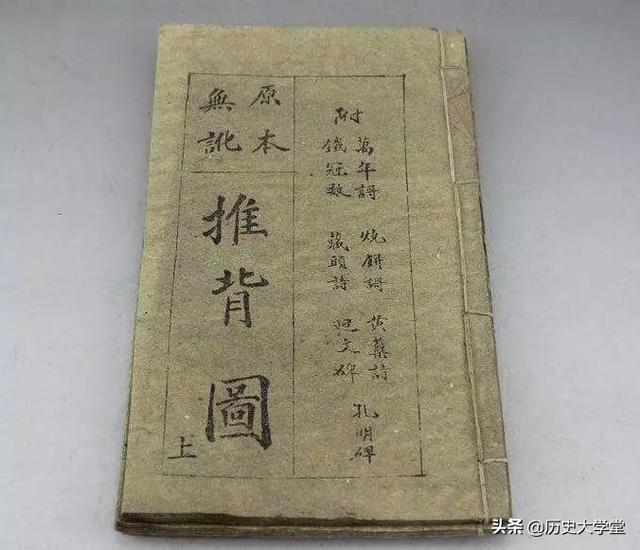 附
萬年謌 燒餅謌 黄蘗詩 孔明碑
鐵冠数 藏頭詩 廻文碑
原本
無訛
推背圖
上
头条 @历史大学堂